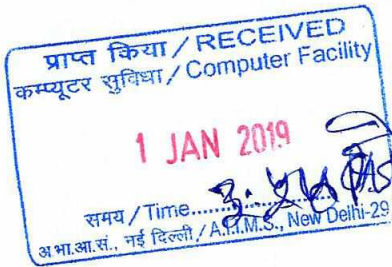 प्राप्त किया / RECEIVED
कम्प्यूटर सुविधा / Computer Facility
1 JAN 2019
समय / Time..............
अ.भा.आ.सं., नई दिल्ली / A.I.I.M.S., New Delhi-29